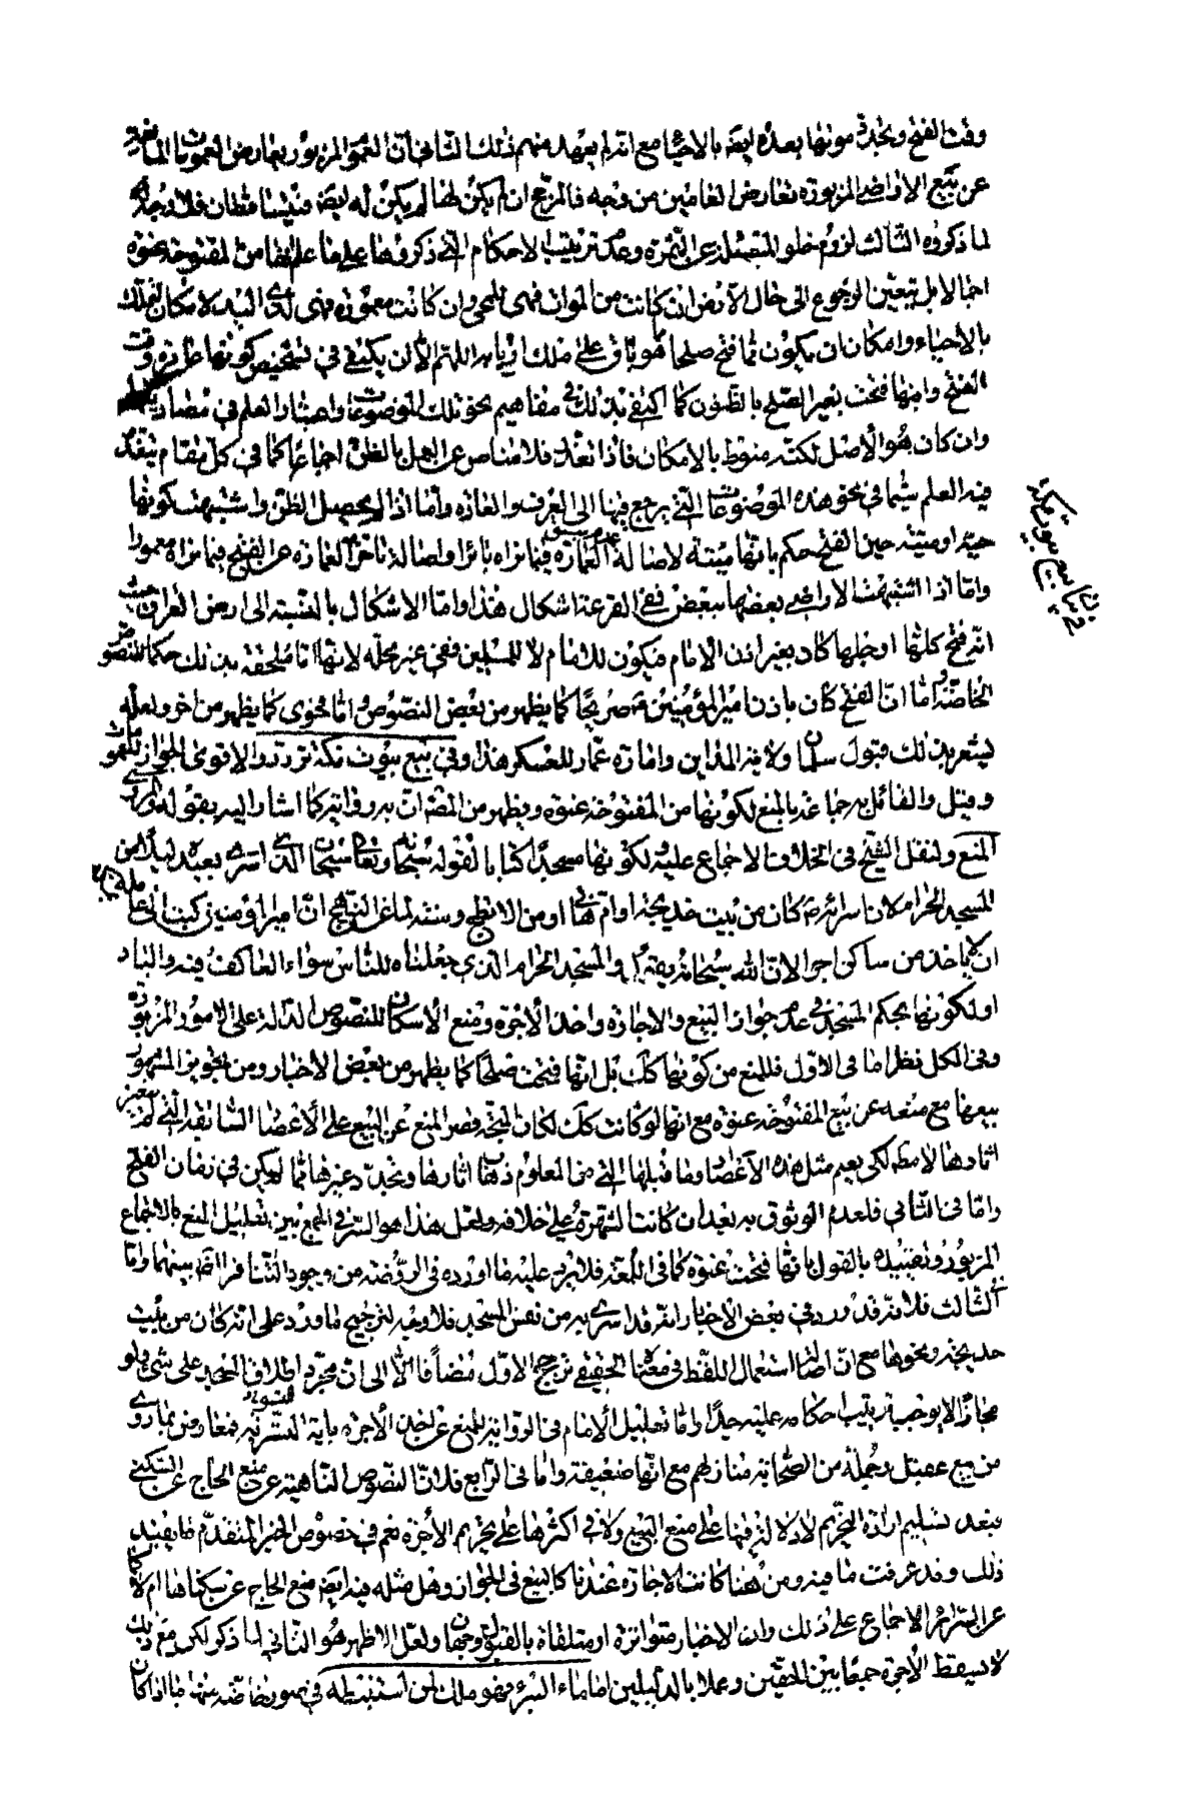 وقت الفتح وتجدد موتها بعده ايضا بالاحياء مع انه لم يعهد منهم ذلك الثاني ان العمو المزبور يعارض العمومات المانعة
عن بيع الاراضي المزبورة تعارض العامين من وجه فالمرجع ان لم يكن لها لم يكن له ايضا فيتساقطان فلا وجه
لما ذكروه الثالث لزوم خلو المسئلة عن الثمرة وعدم ترتيب الاحكام التي ذكروها على ما علم انها من المفتوحة عنوة
اجمالا بل يتعين الرجوع الى حال الارض ان كانت من الموات فهى للمحيى وان كانت معمورة فهى لذى اليد لامكان تملك
بالاحياء وامكان ان يكون مما فتح صلحا هو باق على ملك اربابه اللهم الا ان يكتفى في تشخيص كونها عامرة وقت
الفتح وانها فتحت بغير الصلح بالظنون كما اكتفى بذلك في مفاهيم نحو تلك الموضوعات واعتبار العلم في مصاديقها
وان كان هو الاصل لكنه منوط بالامكان فاذا تعذر فلا مناص عن العمل بالظن اجماعا كما في كل مقام يفقد
فيه العلم سيما في نحو هذه الموضوعات التي يرجع فيها الى العرف والعادة واما اذا لم يحصل الظن واشتبهت كونها
حية او ميتة حين الفتح حكم بانها ميتة لاصالة عدم سبق العمارة فيما نراه بائرا واصالة تاخر العمارة عن الفتح فيما نراه معمورا
واما اذا اشتبهت الاراضي بعضها ببعض ففي القرعة اشكال هذا واما الاشكال بالنسبة الى ارض العراق حيث
انه فتح كلها او جلها كان بغير اذن الامام فيكون للامام لا للمسلمين ففي غير محله لانها اما ملحقة بذلك حكما للنصوص
الخاصة واما ان الفتح كان باذن امير المؤمنين ع صريحا كما يظهر من بعض النصوص اما فحوى كما يظهر من اخر ولعله
ليشعر بذلك قبول سلمان ولاية المداين وامارة عمار للعسكر هذا وفي بيع بيوت مكة تردد والاقوى الجواز للعمومات
وقيل والقائل به جماعة بالمنع لكونها من المفتوحة عنوة ويظهر من المصة ان به رواية كما اشار اليه بقوله والمروى
المنع ولنقل الشيخ في الخلاف الاجماع عليه لكونها مسجدا كتابا لقوله سبحانه وتعالى سبحان الذي اسرى بعبده ليلا من
المسجد الحرام لان اسرائه ص كان من بيت خديجة او ام هانى او من الابطح وسنة لما عن النهج ان امير المؤمنين كتب الى عامله بمكة
ان لا ياخذ من ساكن اجرا لان الله سبحانه يقول والمسجد الحرام الذي جعلناه للناس سواء العاكف فيه والباد
او لكونها بحكم المسجد في عدم جواز البيع والاجارة واخذ الاجرة ومنع الاسكان للنصوص الدالة على الامور المزبورة
وفي الكل نظر اما في الاول فللمنع من كونها كك بل انها فتحت صلحا كما يظهر من بعض الاخبار ومن تجويز المشهور
بيعها مع منعه عن بيع المفتوحة عنوة مع انها لو كانت كك لكان المتجه قصر المنع عن البيع على الاعصار السابقة التي لم تتغير
اثارها لا مطلقا لكي يعم مثل هذه الاعصار وما قبلها التي من المعلوم ذهاب اثارها وتجدد غيرها مما لم يكن في زمان الفتح
واما في الثاني فلعدم الوثوق به بعد ان كانت الشهرة على خلافه ولعل هذا هو السر في الجمع بين تعليل المنع بالاجماع
المزبور وتعقيبه بالقول بانها فتحت عنوة كما في اللمعة فلا يرد عليه ما اورده في الروضة من وجود التنافر الظ بينهما واما
الثالث فلانه قد ورد في بعض الاخبار انه قد اسرى به من نفس المسجد فلا وجه لترجيح ما ورد على انه كان من بيت
خديجة ونحوها مع ان اصالة استعمال اللفظ في معناه الحقيقي ترجح الاول مضافا الى ان مجرد اطلاق المسجد على شئ ولو
مجازا لا يوجب ترتيب احكامه عليه جدا واما تعليل الامام في الرواية للمنع عن اخذ الاجرة باية التسوية فمعارض بما روى
من بيع عقيل وجملة من الصحابة منازلهم مع انها ضعيفة واما في الرابع فلان النصوص الناهية عن منع الحاج عن السكنى
بعد تسليم ارادة التحريم لا دلالة فيها على منع البيع ولا في اكثرها على تحريم الاجرة نعم في خصوص الخبر المتقدم ما يفيد
ذلك وقد عرفت ما فيه ومن هنا كانت الاجارة عندنا كالبيع في الجواز وهل مثله فيه ايضا منع الحاج عن سكناها ام لا كما
عن السرائر الاجماع على ذلك وان الاخبار متواترة او متلقاة بالقبول وجهان ولعل الاظهر هو الثاني لما ذكر لكن مع ذلك
لا يسقط الاجرة جمعا بين الحقين وعملا بالدليلين اما ماء البئر فهو ملك لمن استنبطه في صور خاصة منها ما اذا كان
في بيان بيع بيوت مكة